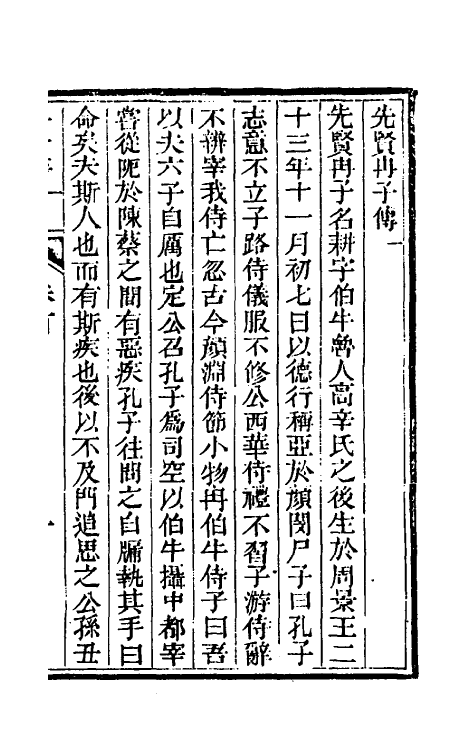 先賢冉子傳
先賢冉子名耕字伯牛魯人高辛氏之後生於周景王二
十三年十一月初七日以德行稱亞於顏閔尸子曰孔子
志意不立子路侍儀服不修公西華侍禮不習子游侍辭
不辨宰我侍亡忽古今顏淵侍節小物冉伯牛侍子曰吾
以夫六子自厲也定公召孔子為司空以伯牛攝中都宰
嘗從阨於陳蔡之間有惡疾孔子往問之自牖執其手曰
命矣夫斯人也而有斯疾也後以不及門追思之公孫丑